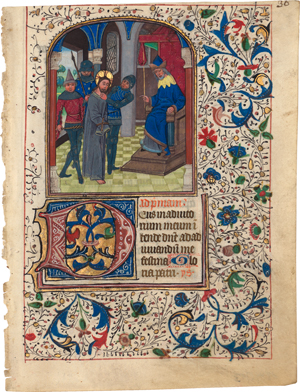 36
Ad primam
Deus in adiuto
rium meum in
tende dne ad ad
iuvandum me
festina Glo
ria patri